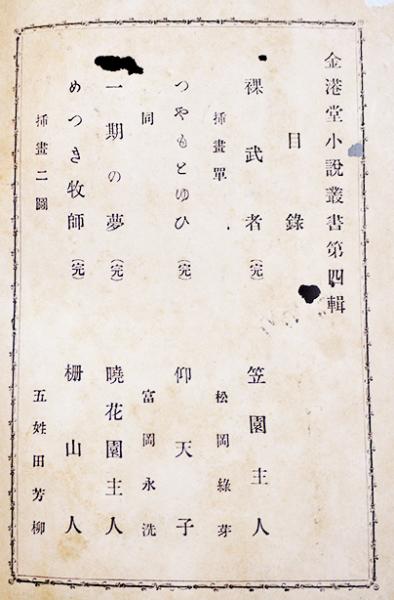 金港堂小說叢書第四輯
目錄
裸武者(完) 笠園主人
挿畫單 松岡綠芽
つやもとゆひ(完) 仰天子
同 富岡永洗
一期の夢(完) 曉花園主人
めつき牧師(完) 柵山人
挿畫二圖 五姓田芳柳